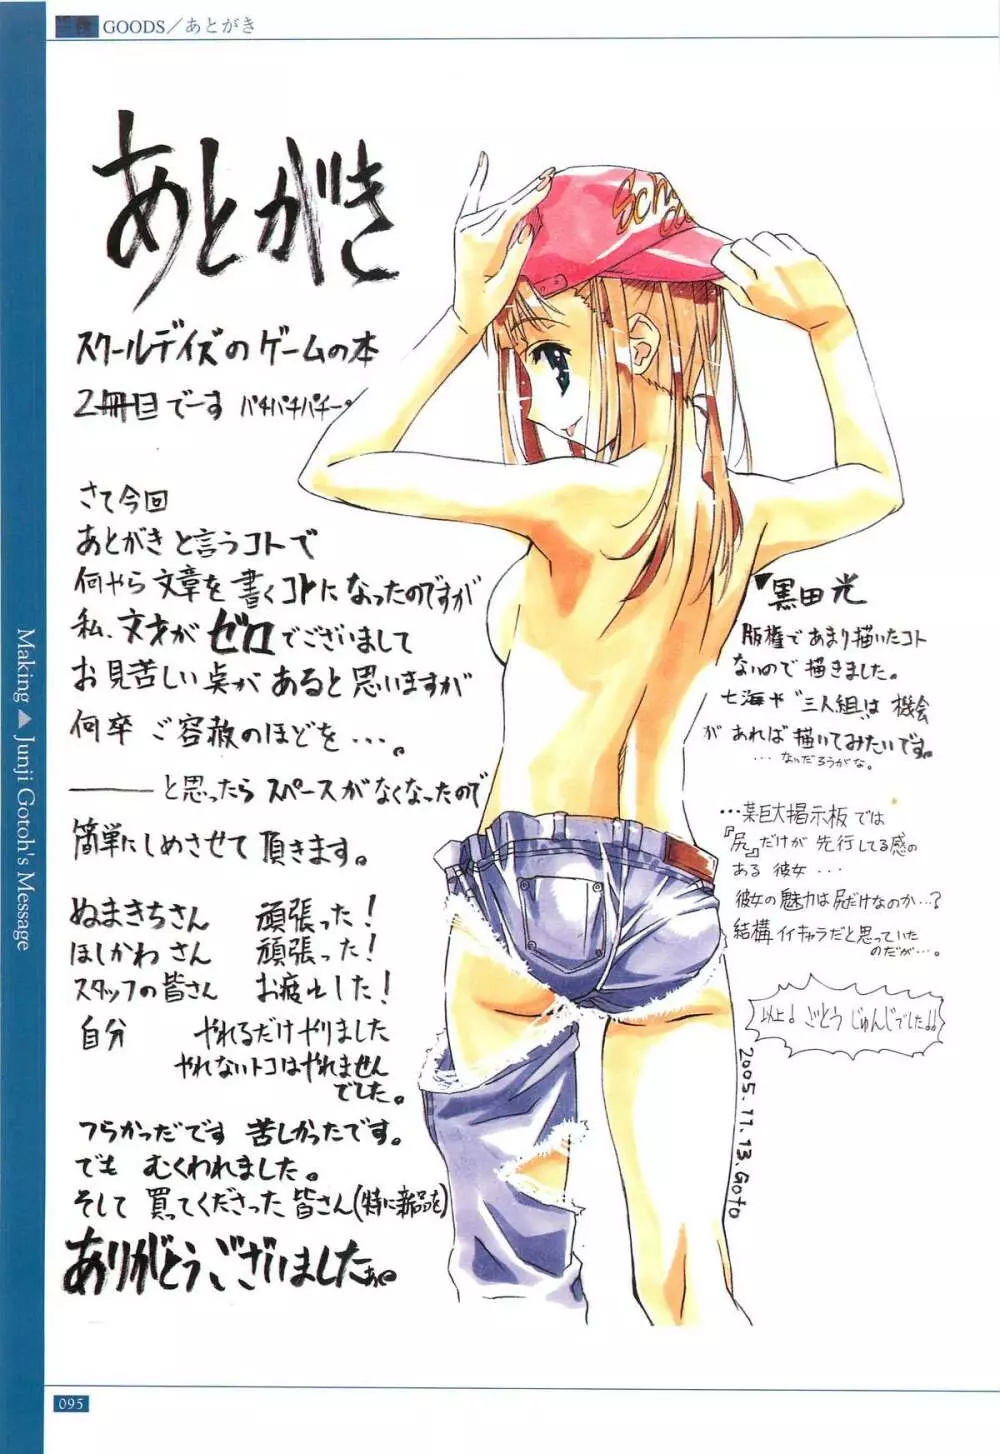 GOODS／あとがき
あとがき
スクールデイズのゲームの本
2冊目でーす パチパチパチー
さて今回
あとがきと言うコトで
何やら文章を書くコトになったのですが
私、文才がゼロでございまして
お見苦しい点があると思いますが
何卒 ご容赦のほどを…。
――と思ったらスペースがなくなったので
簡単にしめさせて頂きます。
ぬまきちさん 頑張った！
ほしかわさん 頑張った！
スタッフの皆さん お疲れした！
自分 やれるだけやりました
やれないトコはやれません
でした。
つらかっだです 苦しかったです。
でも むくわれました。
そして 買ってくださった皆さん(特に新品を)
ありがとうございましたぁ。
黒田光
版権であまり描いたコト
ないので描きました。
七海や"三人組"は機会
があれば描いてみたいです。
…ないだろうがな。
…某巨大掲示板では
『尻』だけが先行してる感の
ある彼女…
彼女の魅力は尻だけなのか…？
結構イイキャラだと思っていた
のだが…。
以上！ごとうじゅんじでした!!
2005.11.13.Goto
Making ▲ Junji Gotoh's Message
095